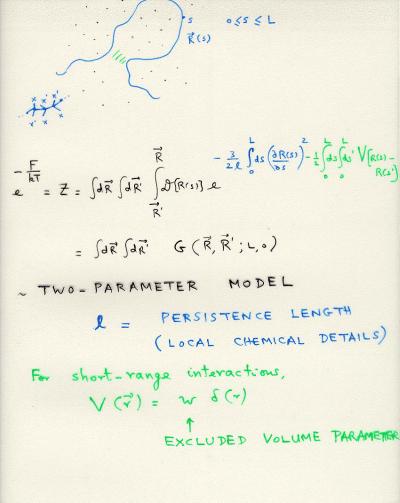 s 0≤s≤L
R⃗(s)
e^{-F/kT} = Z = ∫dR⃗ ∫dR⃗' ∫_{R⃗'}^{R⃗} 𝒟[R(s)] e^{-\frac{3}{2l} ∫_0^L ds (∂R(s)/∂s)^2 - \frac{1}{2} ∫_0^L ds ∫_0^L ds' V[R(s)-R(s')]}
= ∫dR⃗ ∫dR⃗' G(R⃗, R⃗'; L, 0)
~ TWO-PARAMETER MODEL
l = PERSISTENCE LENGTH
(LOCAL CHEMICAL DETAILS)
For short-range interactions,
V(r⃗) = w δ(r)
↑
EXCLUDED VOLUME PARAMETER